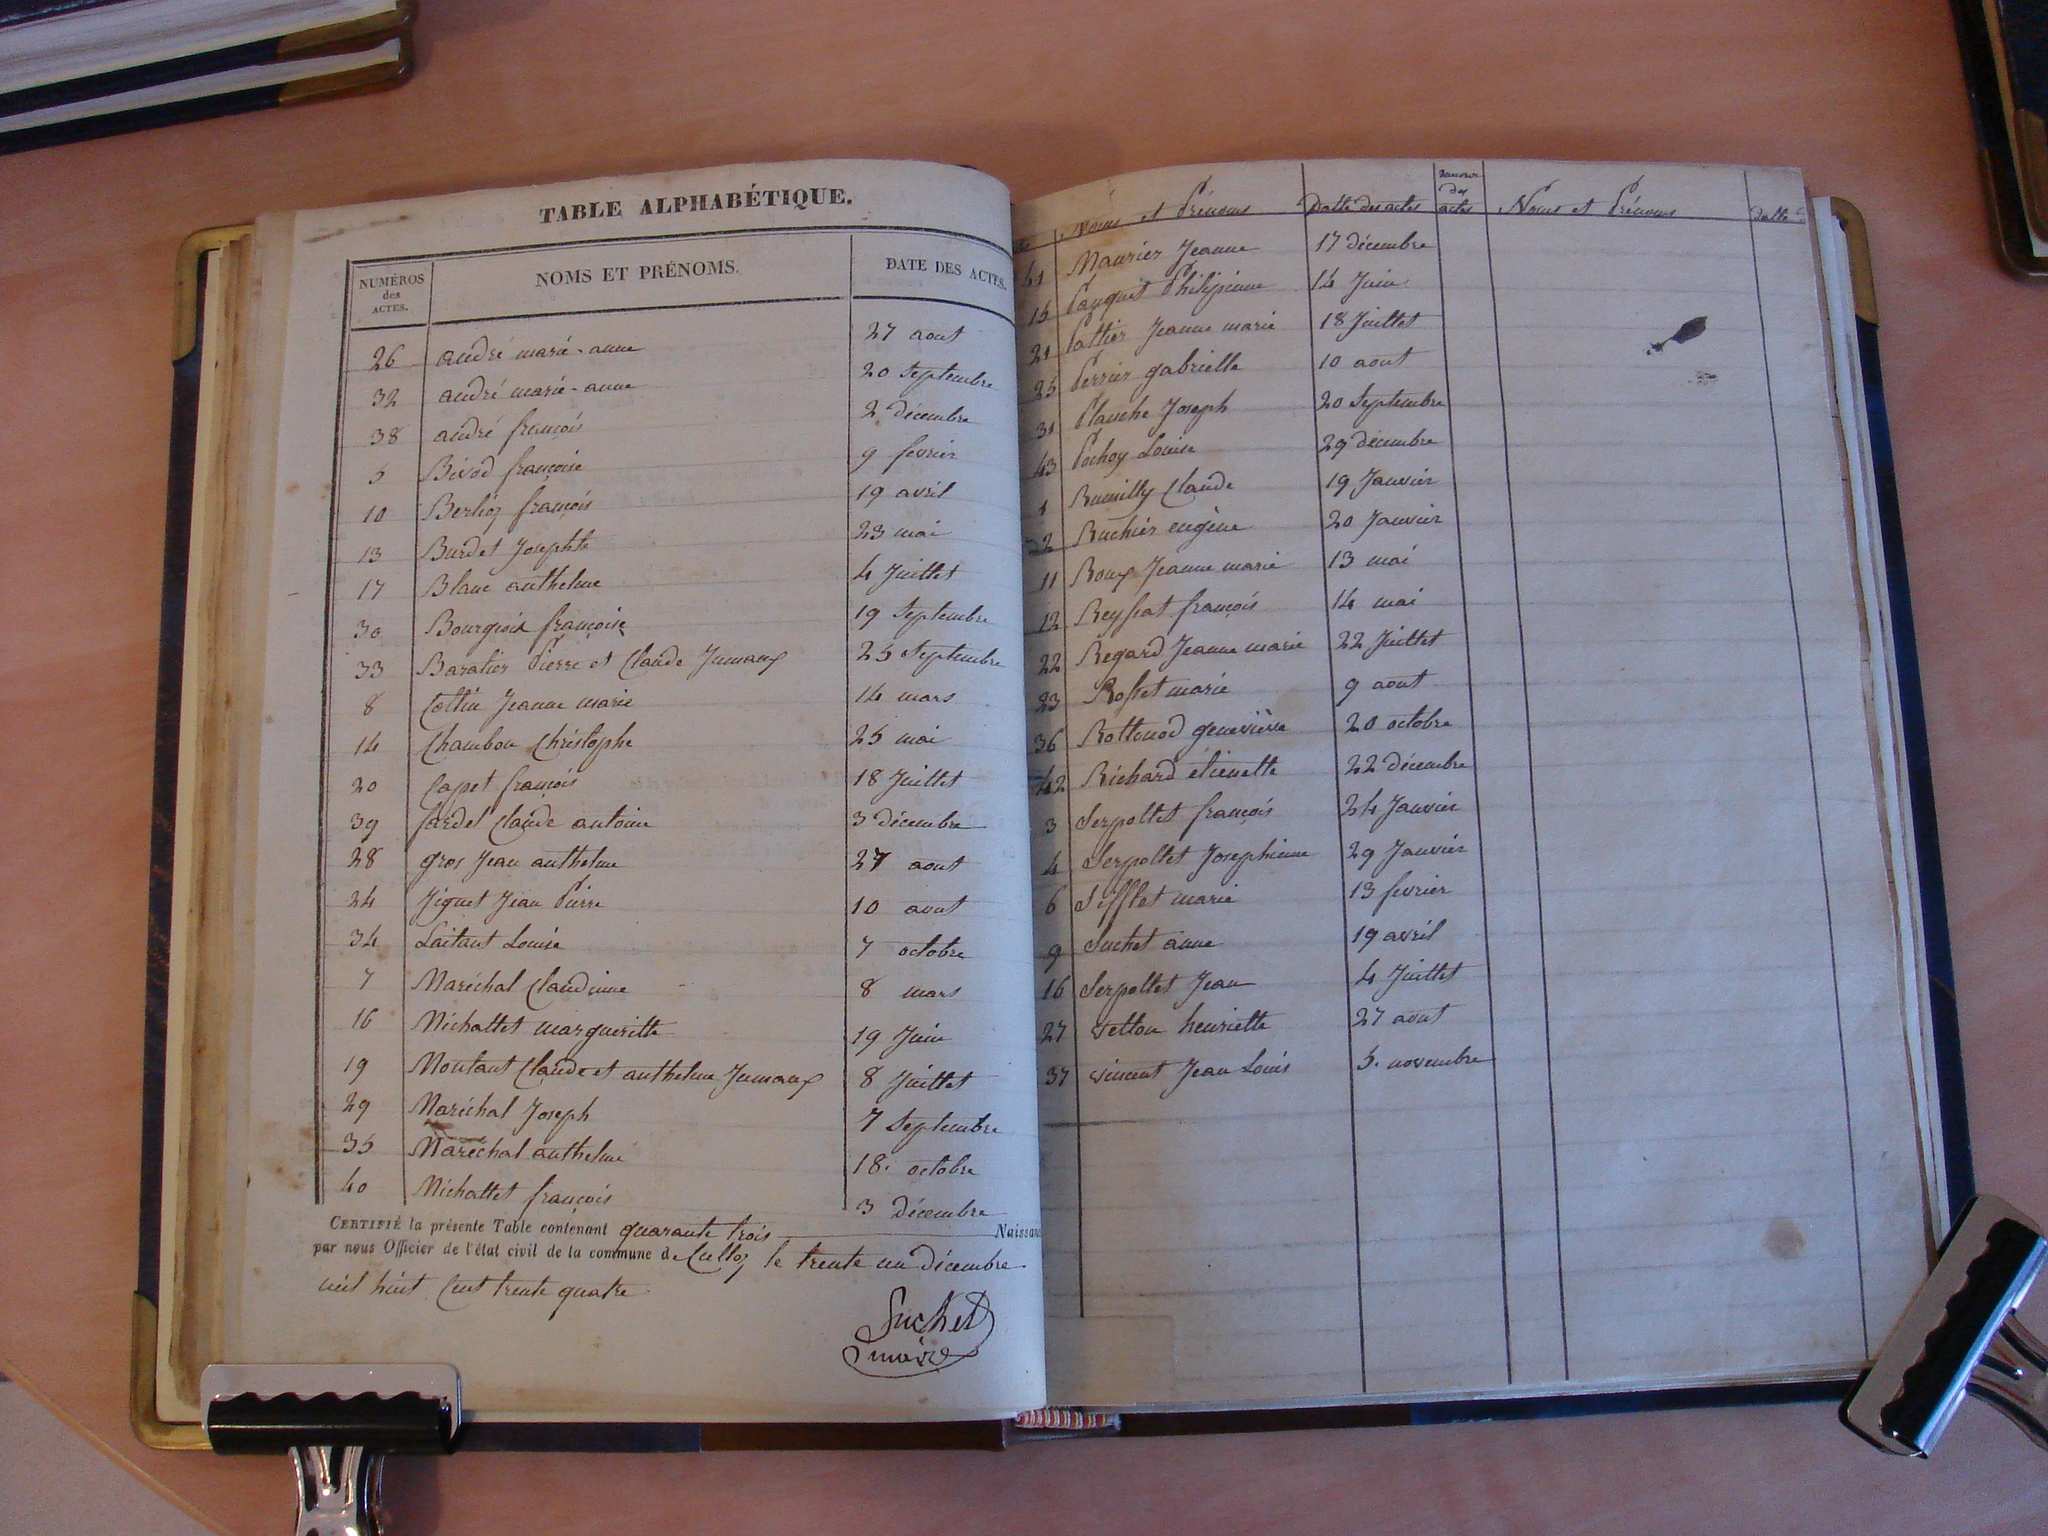 TABLE ALPHABÉTIQUE.
NUMÉROS des ACTES. NOMS ET PRÉNOMS. DATE DES ACTES.
26 andré marie-anne 27 aout
32 andré marie-anne 20 Septembre
38 andré françois 2 décembre
5 Bivod françoise 9 fevrier
10 Berlioz françois 19 avril
13 Burdet Josephte 23 mai
17 Blanc anthelme 4 Juillet
30 Bourgeois françoise 19 Septembre
33 Baratier Pierre et Claude Jumaux 25 Septembre
8 Cottin Jeanne marie 14 mars
14 Chambon Christophe 25 mai
20 Capet françois 18 Juillet
39 fardel Claude antoine 3 décembre
28 gros Jean anthelme 27 aout
24 Jiguet Jean Pierre 10 aout
34 Laitant Louise 7 octobre
7 Maréchal Claudinne 8 mars
16 Michallet margueritte 19 Juin
19 Montant Claude et anthelme Jumaux 8 Juillet
29 Maréchal Joseph 7 Septembre
35 Maréchal anthelme 18. octobre
40 Michallet françois 3 décembre
CERTIFIÉ la présente Table contenant quarante trois Naissan
par nous Officier de l'état civil de la commune de Culloz le trente un décembre
mil huit Cent trente quatre
Suchet
maire
Noms et Prénoms Datte des actes numeros des actes Noms et Prénoms datte
41 Maurier Jeanne 17 décembre
15 Pauguet Philipinne 14 Juin
21 Pottier Jeanne marie 18 Juillet
25 Perrier gabrielle 10 aout
31 Planche Joseph 20 Septembre
43 Pochoy Louise 29 décembre
1 Rumilly Claude 19 Janvier
2 Ruchier eugène 20 Janvier
11 Roux Jeanne marie 13 mai
12 Reyssat françois 14 mai
22 Regard Jeanne marie 22 Juillet
23 Rosset marie 9 aout
36 Rottenod geneviève 20 octobre
42 Richard étienette 22 décembre
3 Serpollet françois 24 Janvier
4 Serpollet Josephinne 29 Janvier
6 Sifflet marie 13 fevrier
9 Suchet anne 19 avril
16 Serpollet Jean 4 Juillet
27 vetton henriette 27 aout
37 vincent Jean Louis 5. novembre